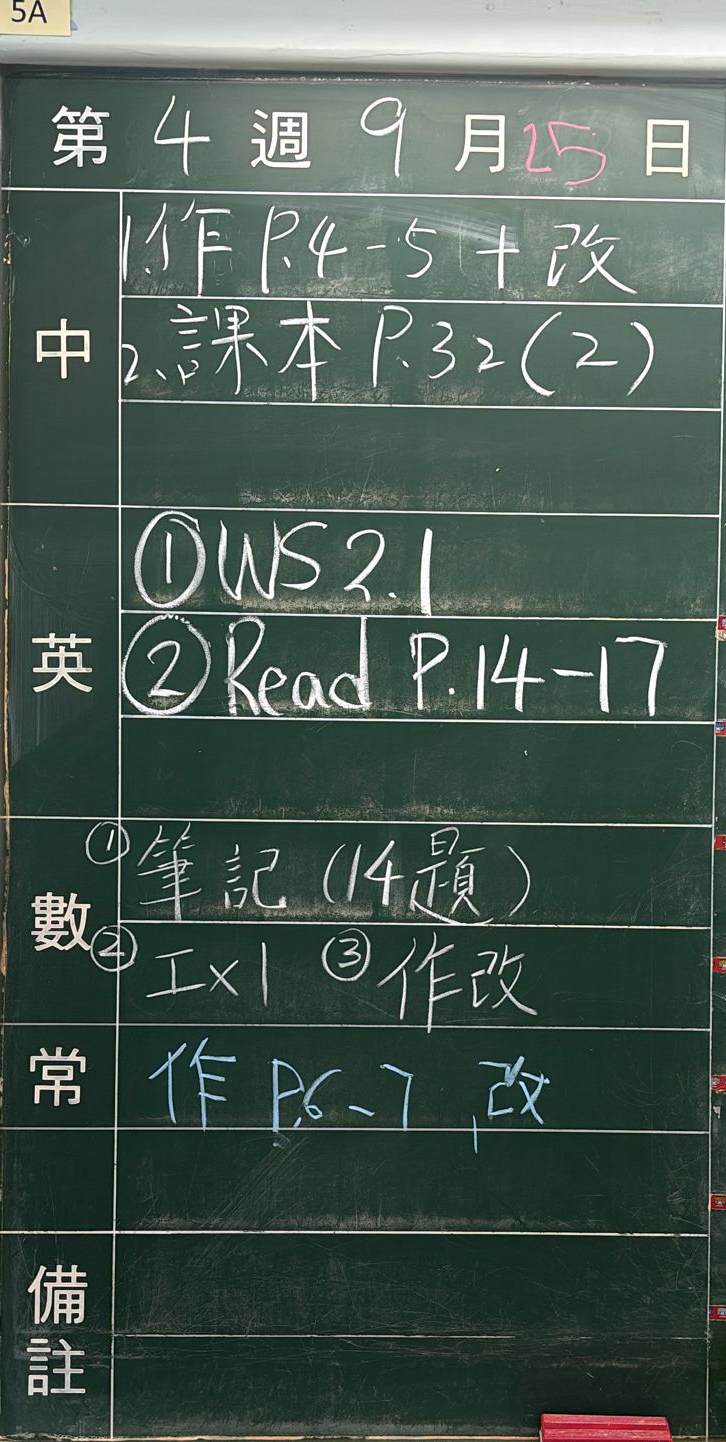 5A
第 4 週 9 月 25 日
中
1.作 P.4-5 + 改
2.課本 P.32(2)
英
①WS 2.1
②Read P.14-17
數
①筆記 (14題)
②工x1 ③作改
常
作 P.6-7,改
備註